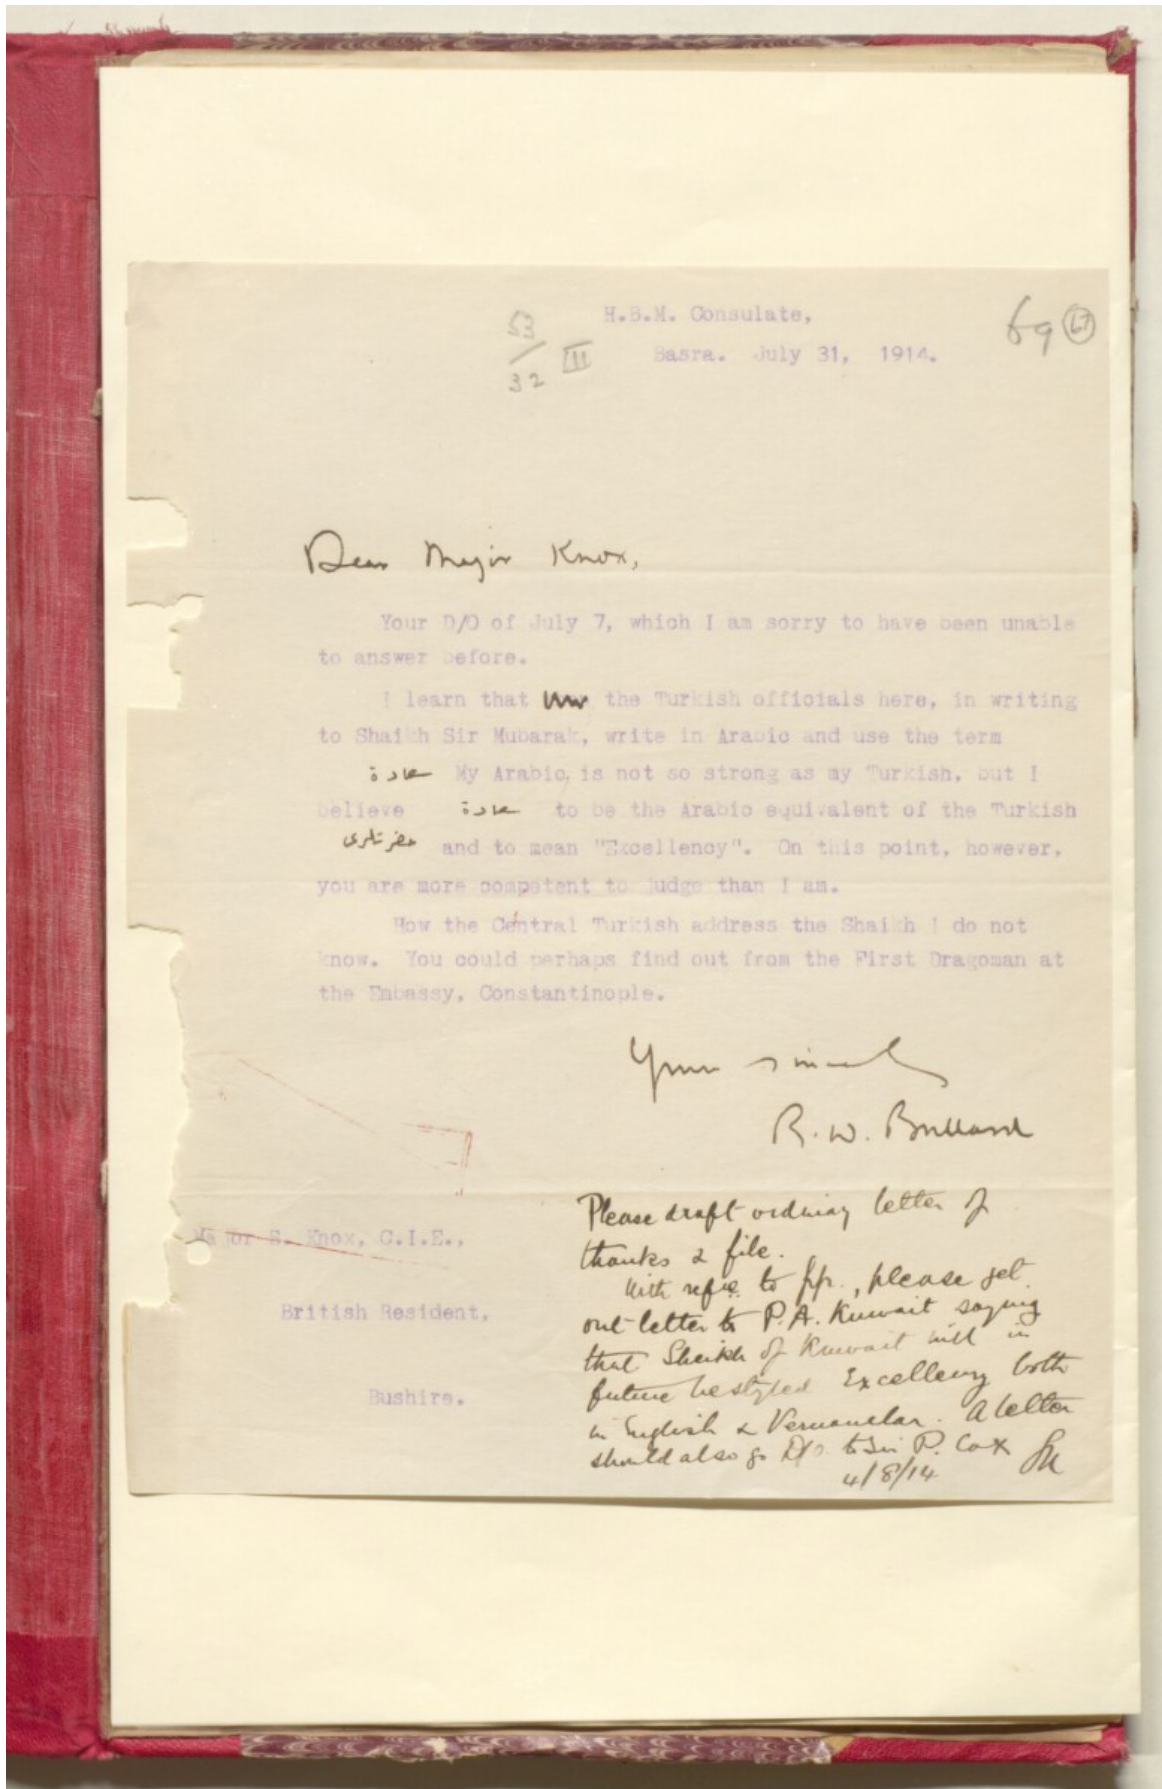 H.B.M. Consulate,
Basra. July 31, 1914.
53
32
III
69
67
Dear Major Knox,
Your D/O of July 7, which I am sorry to have been unable
to answer before.
I learn that the Turkish officials here, in writing
to Shaikh Sir Mubarak, write in Arabic and use the term
سعادة My Arabic, is not so strong as my Turkish, but I
believe سعادة to be the Arabic equivalent of the Turkish
حضرتلری and to mean "Excellency". On this point, however,
you are more competent to judge than I am.
How the Central Turkish address the Shaikh I do not
know. You could perhaps find out from the First Dragoman at
the Embassy, Constantinople.
Yours sincerely
R. W. Bullard
Major S. Knox, C.I.E.,
British Resident,
Bushire.
Please draft ordinary letter of
thanks & file.
With refce. to pp., please get
out letter to P.A. Kuwait saying
that Sheikh of Kuwait will in
future be styled Excellency both
in English & Vernacular. A letter
should also go D/o. to Sir P. Cox
4/8/14